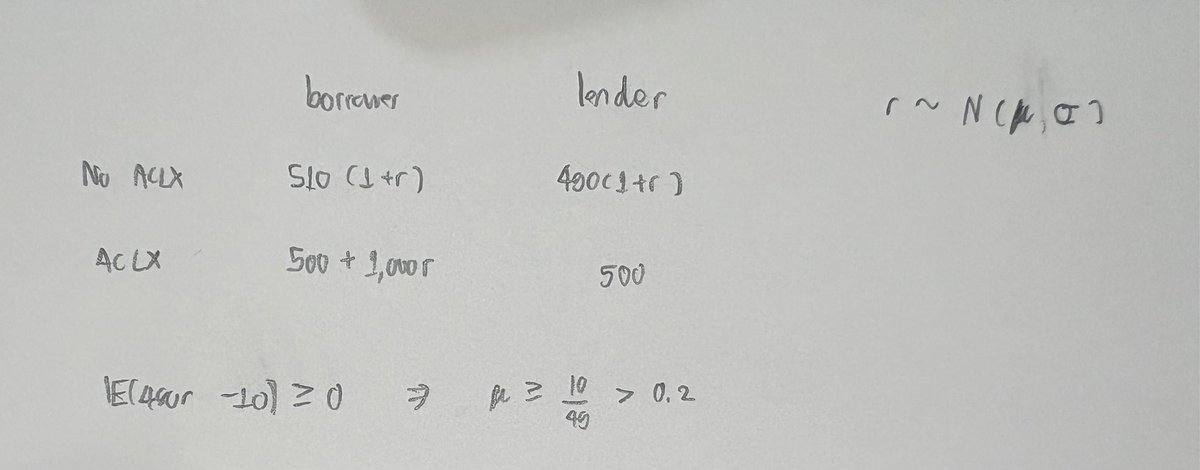 borrower lender r ~ N(μ, σ)
No ACLX 510 (1+r) 490(1+r)
ACLX 500 + 1,000r 500
E(490r -10) ≥ 0 ⇒ μ ≥ 10/49 > 0.2